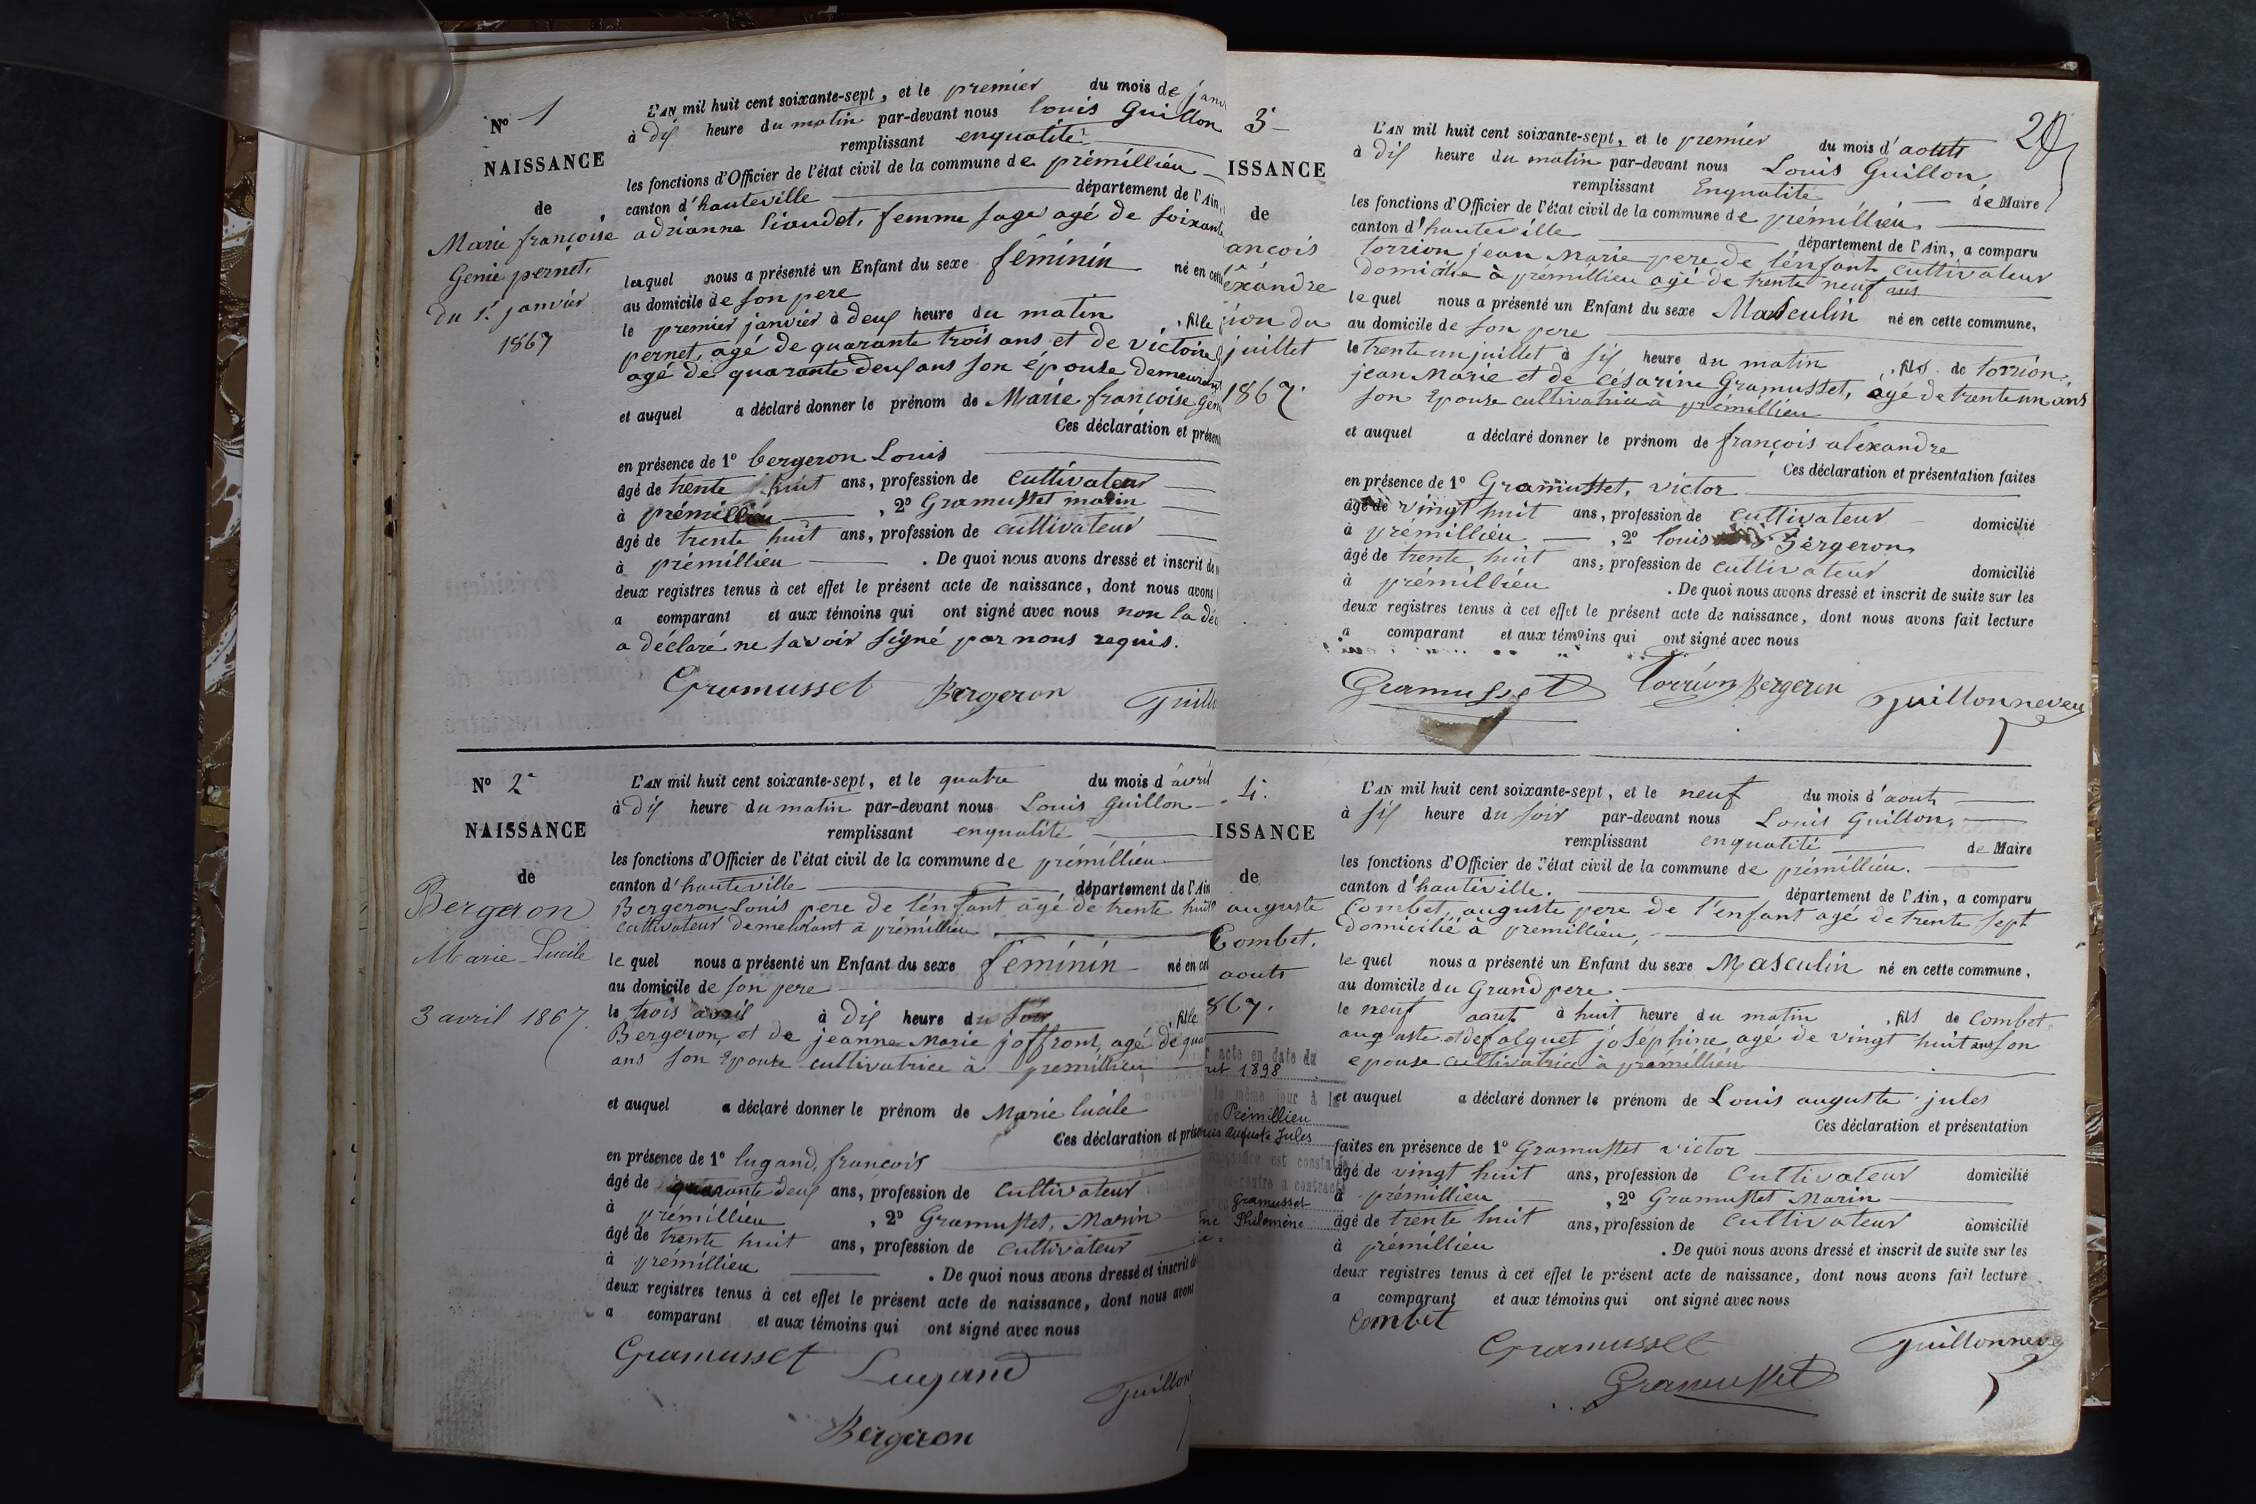 N° 1
NAISSANCE
de
Marie françoise
Genie pernet,
du 1er janvier
1867
L'AN mil huit cent soixante-sept, et le premier du mois de janv
à dix heure du matin par-devant nous louis Guillon
remplissant enqualité
les fonctions d'Officier de l'état civil de la commune de prémillieu
canton d'hauteville département de l'Ain,
adrianne liaudet, femme sage agé de soixante
lequel nous a présenté un Enfant du sexe féminin né en cette
au domicile de son pere
le premier janvier à deux heure du matin , fille
pernet, agé de quarante trois ans et de victoire
agé de quarante deux ans son épouse demeurant
et auquel a déclaré donner le prénom de Marie françoise Géni
Ces déclaration et présent
en présence de 1° bergeron Louis
âgé de trente huit ans, profession de cultivateur
à prémillieu , 2° Gramusset marin
âgé de trente huit ans, profession de cultivateur
à prémillieu . De quoi nous avons dressé et inscrit de
deux registres tenus à cet effet le présent acte de naissance, dont nous avons
a comparant et aux témoins qui ont signé avec nous non la déc
a déclaré ne savoir signé par nous requis.
Gramusset Bergeron Guillo
N° 2
NAISSANCE
de
Bergeron
Marie Lucile
3 avril 1867.
L'AN mil huit cent soixante-sept, et le quatre du mois d'avril
à dix heure du matin par-devant nous Louis Guillon
remplissant enqualité
les fonctions d'Officier de l'état civil de la commune de prémillieu
canton d'hauteville département de l'Ain
Bergeron Louis pere de l'énfant âgé de trente huit
cultivateur demeurant à prémillieu
le quel nous a présenté un Enfant du sexe féminin né en cet
au domicile de son pere
le trois avril à dix heure du soir , fille
Bergeron, et de jeanne Marie joffront, agé de qua
ans son épouse cultivatrice à prémillieu
et auquel a déclaré donner le prénom de Marie lucile
Ces déclaration et présen
en présence de 1° lugand, francois
âgé de quarante deux ans, profession de cultivateur
à prémillieu , 2° Gramusset, Marin
âgé de trente huit ans, profession de cultivateur
à prémillieu . De quoi nous avons dressé et inscrit de
deux registres tenus à cet effet le présent acte de naissance, dont nous avons
a comparant et aux témoins qui ont signé avec nous
Gramusset Lugand Guillon
Bergeron
3
ISSANCE
de
ancois
éxandre
ion du
juillet
1867.
L'AN mil huit cent soixante-sept, et le premier du mois d'aouts
à dix heure du matin par-devant nous Louis Guillon
remplissant Enqualité de Maire
les fonctions d'Officier de l'état civil de la commune de prémillieu
canton d'hauteville département de l'Ain, a comparu
torrion jean Marie pere de l'énfant cultivateur
domicilié à prémillieu agé de trente neuf ans
le quel nous a présenté un Enfant du sexe Masculin né en cette commune,
au domicile de son pere
le trente un juillet à six heure du matin , fils de torrion,
jean Marie et de césarine Gramusset, agé de trente un ans
son épouse cultivatrice à prémillieu
et auquel a déclaré donner le prénom de françois aléxandre
Ces déclaration et présentation faites
en présence de 1° Gramusset, victor
âgé de vingt huit ans, profession de cultivateur domicilié
à prémillieu , 2° louis Bergeron
âgé de trente huit ans, profession de cultivateur domicilié
à prémillieu . De quoi nous avons dressé et inscrit de suite sur les
deux registres tenus à cet effet le présent acte de naissance, dont nous avons fait lecture
a comparant et aux témoins qui ont signé avec nous
Gramusset Torrion Bergeron Guillonneveu
4.
ISSANCE
de
auguste
Combet,
aouts
867.
r acte en date du
1898
le même jour à la
Prémillieu
auguste Jules
est constaté
a contracté
Gramusset
Philomène
L'AN mil huit cent soixante-sept, et le neuf du mois d'aout
à six heure du soir par-devant nous Louis Guillon,
remplissant enqualité de Maire
les fonctions d'Officier de l'état civil de la commune de prémillieu.
canton d'hauteville. département de l'Ain, a comparu
Combet, auguste pere de l'enfant agé de trente sept
domicilié à premillieu,
le quel nous a présenté un Enfant du sexe Masculin né en cette commune,
au domicile du Grand pere
le neuf aout à huit heure du matin , fils de Combet
auguste et de falquet joséphine agé de vingt huit ans son
epouse cultivatrice à prémillieu
et auquel a déclaré donner le prénom de Louis auguste jules
Ces déclaration et présentation
faites en présence de 1° Gramusset victor
âgé de vingt huit ans, profession de cultivateur domicilié
à prémillieu , 2° Gramusset Marin
âgé de trente huit ans, profession de cultivateur domicilié
à prémillieu . De quoi nous avons dressé et inscrit de suite sur les
deux registres tenus à cet effet le présent acte de naissance, dont nous avons fait lecture
a comparant et aux témoins qui ont signé avec nous
Combet
Gramusset Guillonneve
Gramusset